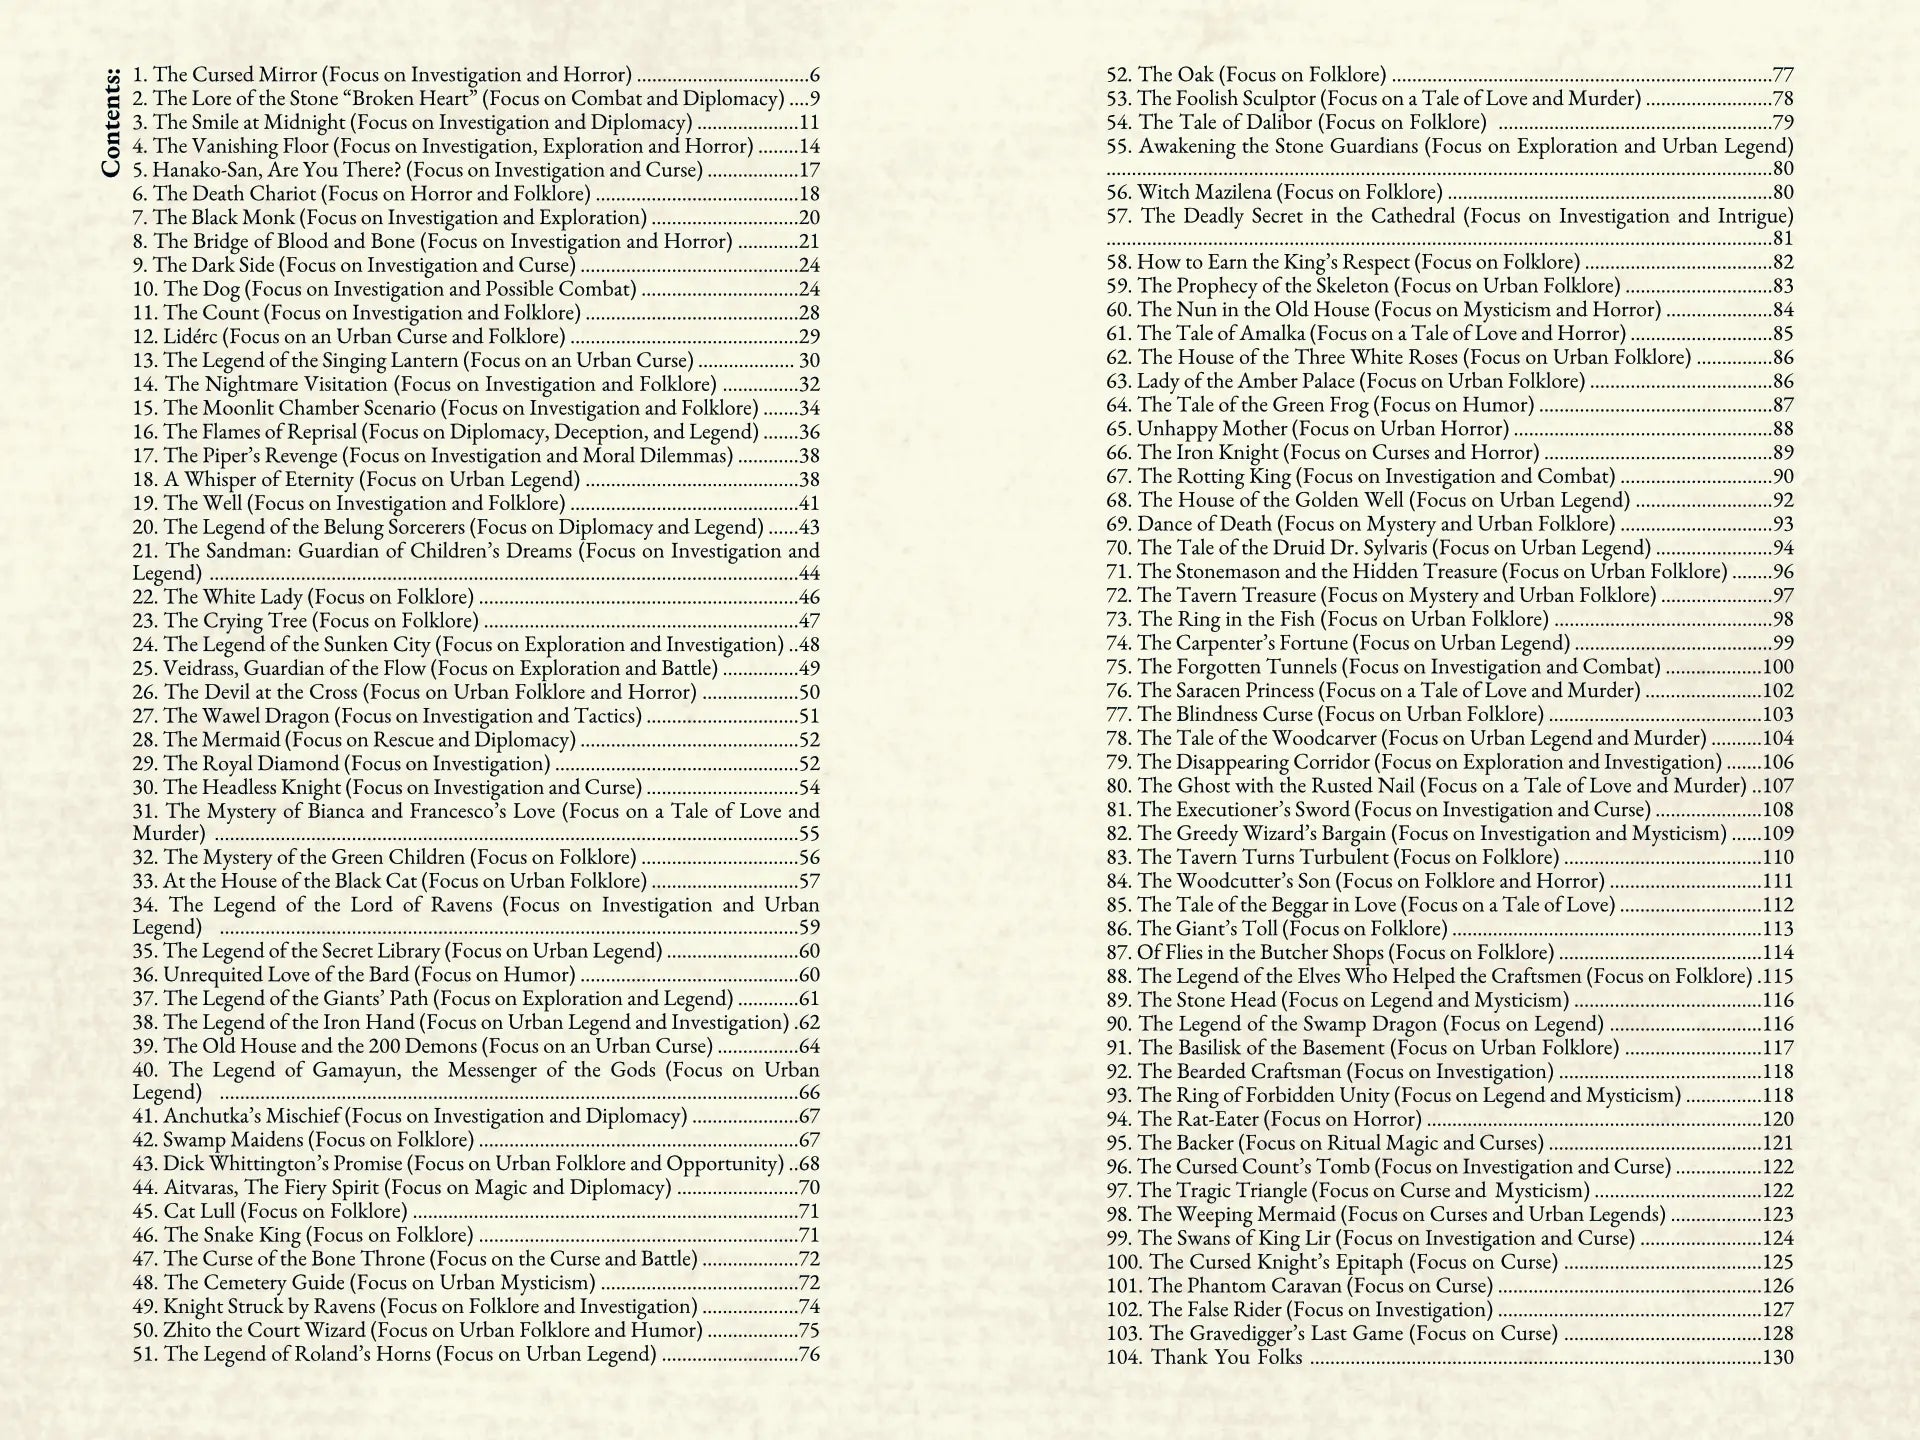 Contents:
1. The Cursed Mirror (Focus on Investigation and Horror) ..................................6
2. The Lore of the Stone “Broken Heart” (Focus on Combat and Diplomacy) ....9
3. The Smile at Midnight (Focus on Investigation and Diplomacy) ....................11
4. The Vanishing Floor (Focus on Investigation, Exploration and Horror) ........14
5. Hanako-San, Are You There? (Focus on Investigation and Curse) ..................17
6. The Death Chariot (Focus on Horror and Folklore) ........................................18
7. The Black Monk (Focus on Investigation and Exploration) .............................20
8. The Bridge of Blood and Bone (Focus on Investigation and Horror) ............21
9. The Dark Side (Focus on Investigation and Curse) ...........................................24
10. The Dog (Focus on Investigation and Possible Combat) ...............................24
11. The Count (Focus on Investigation and Folklore) ..........................................28
12. Lidérc (Focus on an Urban Curse and Folklore) .............................................29
13. The Legend of the Singing Lantern (Focus on an Urban Curse) ................... 30
14. The Nightmare Visitation (Focus on Investigation and Folklore) ...............32
15. The Moonlit Chamber Scenario (Focus on Investigation and Folklore) .......34
16. The Flames of Reprisal (Focus on Diplomacy, Deception, and Legend) .......36
17. The Piper’s Revenge (Focus on Investigation and Moral Dilemmas) ............38
18. A Whisper of Eternity (Focus on Urban Legend) ..........................................38
19. The Well (Focus on Investigation and Folklore) .............................................41
20. The Legend of the Belung Sorcerers (Focus on Diplomacy and Legend) ......43
21. The Sandman: Guardian of Children’s Dreams (Focus on Investigation and
Legend) .....................................................................................................................44
22. The White Lady (Focus on Folklore) ...............................................................46
23. The Crying Tree (Focus on Folklore) ..............................................................47
24. The Legend of the Sunken City (Focus on Exploration and Investigation) ..48
25. Veidrass, Guardian of the Flow (Focus on Exploration and Battle) ...............49
26. The Devil at the Cross (Focus on Urban Folklore and Horror) ...................50
27. The Wawel Dragon (Focus on Investigation and Tactics) ..............................51
28. The Mermaid (Focus on Rescue and Diplomacy) ...........................................52
29. The Royal Diamond (Focus on Investigation) ................................................52
30. The Headless Knight (Focus on Investigation and Curse) ..............................54
31. The Mystery of Bianca and Francesco’s Love (Focus on a Tale of Love and
Murder) ....................................................................................................................55
32. The Mystery of the Green Children (Focus on Folklore) ...............................56
33. At the House of the Black Cat (Focus on Urban Folklore) .............................57
34. The Legend of the Lord of Ravens (Focus on Investigation and Urban
Legend) ...................................................................................................................59
35. The Legend of the Secret Library (Focus on Urban Legend) ..........................60
36. Unrequited Love of the Bard (Focus on Humor) ...........................................60
37. The Legend of the Giants’ Path (Focus on Exploration and Legend) ............61
38. The Legend of the Iron Hand (Focus on Urban Legend and Investigation) .62
39. The Old House and the 200 Demons (Focus on an Urban Curse) ................64
40. The Legend of Gamayun, the Messenger of the Gods (Focus on Urban
Legend) ...................................................................................................................66
41. Anchutka’s Mischief (Focus on Investigation and Diplomacy) .....................67
42. Swamp Maidens (Focus on Folklore) ...............................................................67
43. Dick Whittington’s Promise (Focus on Urban Folklore and Opportunity) ..68
44. Aitvaras, The Fiery Spirit (Focus on Magic and Diplomacy) ........................70
45. Cat Lull (Focus on Folklore) ............................................................................71
46. The Snake King (Focus on Folklore) ...............................................................71
47. The Curse of the Bone Throne (Focus on the Curse and Battle) ...................72
48. The Cemetery Guide (Focus on Urban Mysticism) .......................................72
49. Knight Struck by Ravens (Focus on Folklore and Investigation) ...................74
50. Zhito the Court Wizard (Focus on Urban Folklore and Humor) ..................75
51. The Legend of Roland’s Horns (Focus on Urban Legend) ...........................76
52. The Oak (Focus on Folklore) ...........................................................................77
53. The Foolish Sculptor (Focus on a Tale of Love and Murder) .........................78
54. The Tale of Dalibor (Focus on Folklore) ......................................................79
55. Awakening the Stone Guardians (Focus on Exploration and Urban Legend)
....................................................................................................................................80
56. Witch Mazilena (Focus on Folklore) ................................................................80
57. The Deadly Secret in the Cathedral (Focus on Investigation and Intrigue)
....................................................................................................................................81
58. How to Earn the King’s Respect (Focus on Folklore) .....................................82
59. The Prophecy of the Skeleton (Focus on Urban Folklore) .............................83
60. The Nun in the Old House (Focus on Mysticism and Horror) .....................84
61. The Tale of Amalka (Focus on a Tale of Love and Horror) ............................85
62. The House of the Three White Roses (Focus on Urban Folklore) ...............86
63. Lady of the Amber Palace (Focus on Urban Folklore) ....................................86
64. The Tale of the Green Frog (Focus on Humor) ..............................................87
65. Unhappy Mother (Focus on Urban Horror) ...................................................88
66. The Iron Knight (Focus on Curses and Horror) .............................................89
67. The Rotting King (Focus on Investigation and Combat) ...............................90
68. The House of the Golden Well (Focus on Urban Legend) ...........................92
69. Dance of Death (Focus on Mystery and Urban Folklore) ..............................93
70. The Tale of the Druid Dr. Sylvaris (Focus on Urban Legend) .......................94
71. The Stonemason and the Hidden Treasure (Focus on Urban Folklore) ........96
72. The Tavern Treasure (Focus on Mystery and Urban Folklore) ......................97
73. The Ring in the Fish (Focus on Urban Folklore) ...........................................98
74. The Carpenter’s Fortune (Focus on Urban Legend) .......................................99
75. The Forgotten Tunnels (Focus on Investigation and Combat) ...................100
76. The Saracen Princess (Focus on a Tale of Love and Murder) .......................102
77. The Blindness Curse (Focus on Urban Folklore) ..........................................103
78. The Tale of the Woodcarver (Focus on Urban Legend and Murder) ..........104
79. The Disappearing Corridor (Focus on Exploration and Investigation) .......106
80. The Ghost with the Rusted Nail (Focus on a Tale of Love and Murder) ..107
81. The Executioner’s Sword (Focus on Investigation and Curse) .....................108
82. The Greedy Wizard’s Bargain (Focus on Investigation and Mysticism) ......109
83. The Tavern Turns Turbulent (Focus on Folklore) .......................................110
84. The Woodcutter’s Son (Focus on Folklore and Horror) ..............................111
85. The Tale of the Beggar in Love (Focus on a Tale of Love) ............................112
86. The Giant’s Toll (Focus on Folklore) ..............................................................113
87. Of Flies in the Butcher Shops (Focus on Folklore) ........................................114
88. The Legend of the Elves Who Helped the Craftsmen (Focus on Folklore) .115
89. The Stone Head (Focus on Legend and Mysticism) .....................................116
90. The Legend of the Swamp Dragon (Focus on Legend) ..............................116
91. The Basilisk of the Basement (Focus on Urban Folklore) ...........................117
92. The Bearded Craftsman (Focus on Investigation) ........................................118
93. The Ring of Forbidden Unity (Focus on Legend and Mysticism) ...............118
94. The Rat-Eater (Focus on Horror) ..................................................................120
95. The Backer (Focus on Ritual Magic and Curses) ..........................................121
96. The Cursed Count’s Tomb (Focus on Investigation and Curse) .................122
97. The Tragic Triangle (Focus on Curse and Mysticism) .................................122
98. The Weeping Mermaid (Focus on Curses and Urban Legends) ..................123
99. The Swans of King Lir (Focus on Investigation and Curse) ........................124
100. The Cursed Knight’s Epitaph (Focus on Curse) .......................................125
101. The Phantom Caravan (Focus on Curse) ....................................................126
102. The False Rider (Focus on Investigation) ....................................................127
103. The Gravedigger’s Last Game (Focus on Curse) .......................................128
104. Thank You Folks .........................................................................................130